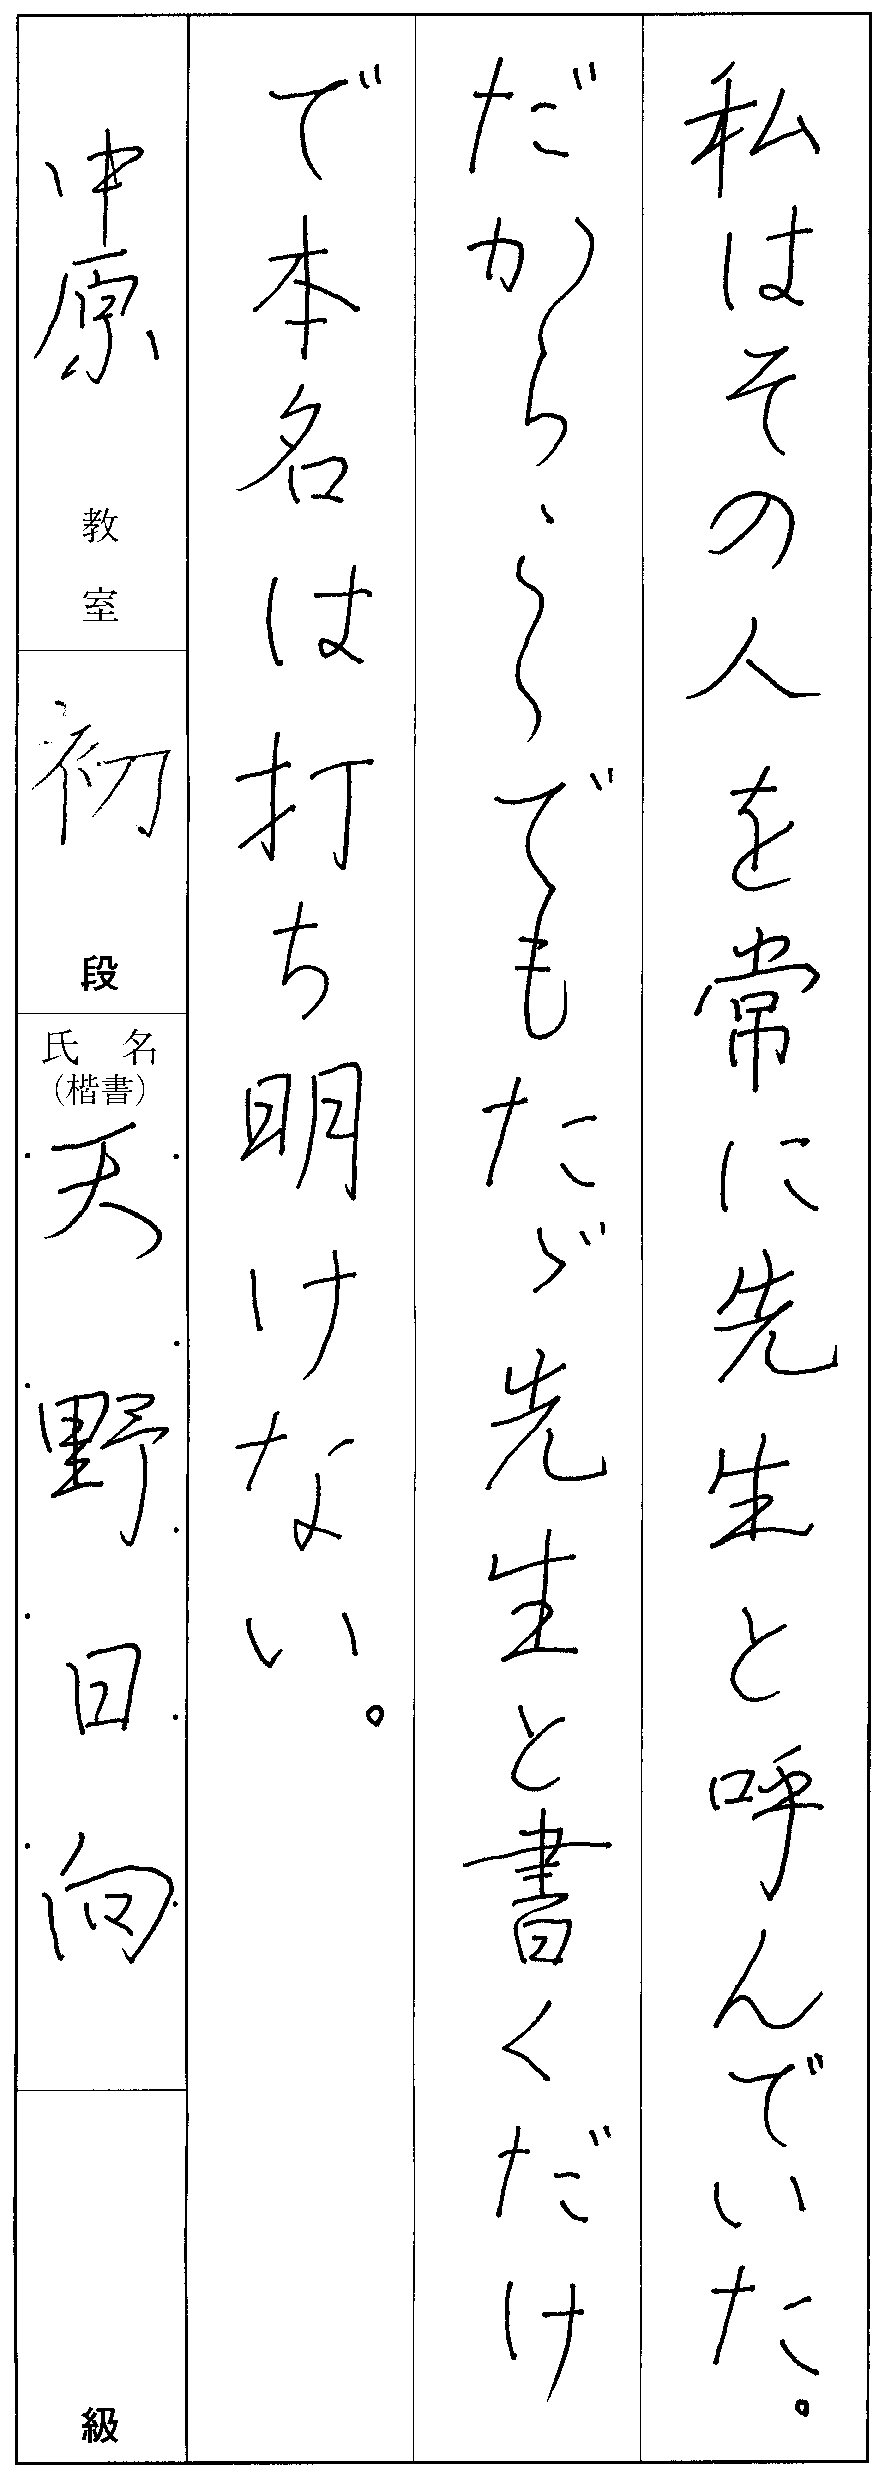 私はその人を常に先生と呼んでいた。
だからこゝでもたゞ先生と書くだけ
で本名は打ち明けない。
中原 教室
初 段
氏名
(楷書)
天野日向
級